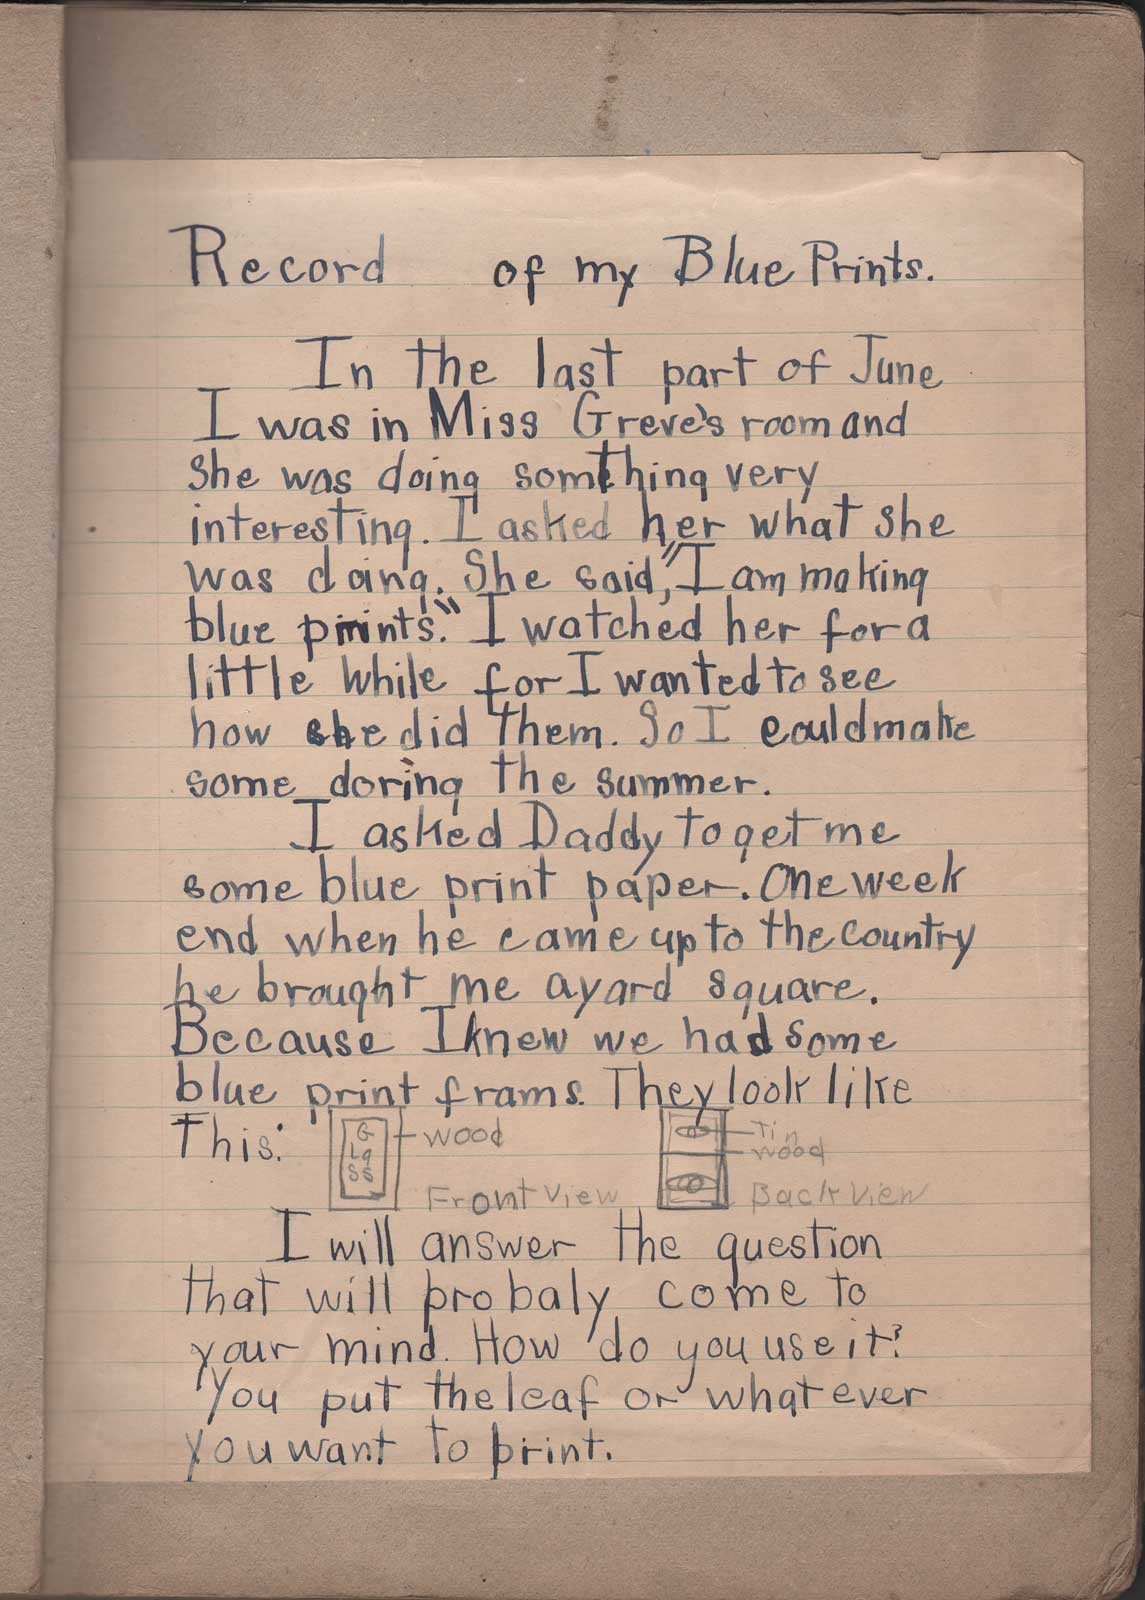 Record of my Blue Prints.
In the last part of June
I was in Miss Greve's room and
she was doing something very
interesting. I asked her what she
was doing. She said, "I am making
blue prints." I watched her for a
little while for I wanted to see
how she did them. So I could make
some doring the summer.
I asked Daddy to get me
some blue print paper. One week
end when he came up to the country
he brought me a yard square.
Because I knew we had some
blue print frams. They look like
This:
G
La
Ss
wood
Front View
Tin
wood
Back View
I will answer the question
that will probaly come to
your mind. How do you use it?
You put the leaf or what ever
you want to print.